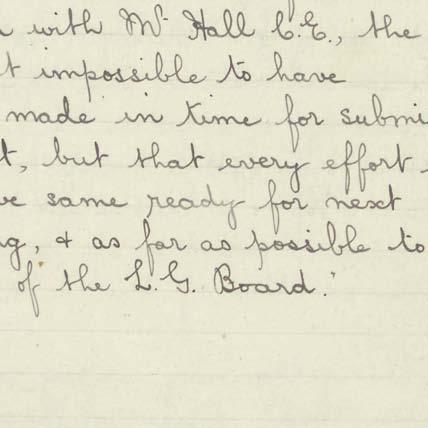 with Mr Hall C.E., the
t impossible to have
made in time for submi
t, but that every effort
ve same ready for next
ng, & as far as possible to
of the L.G. Board."